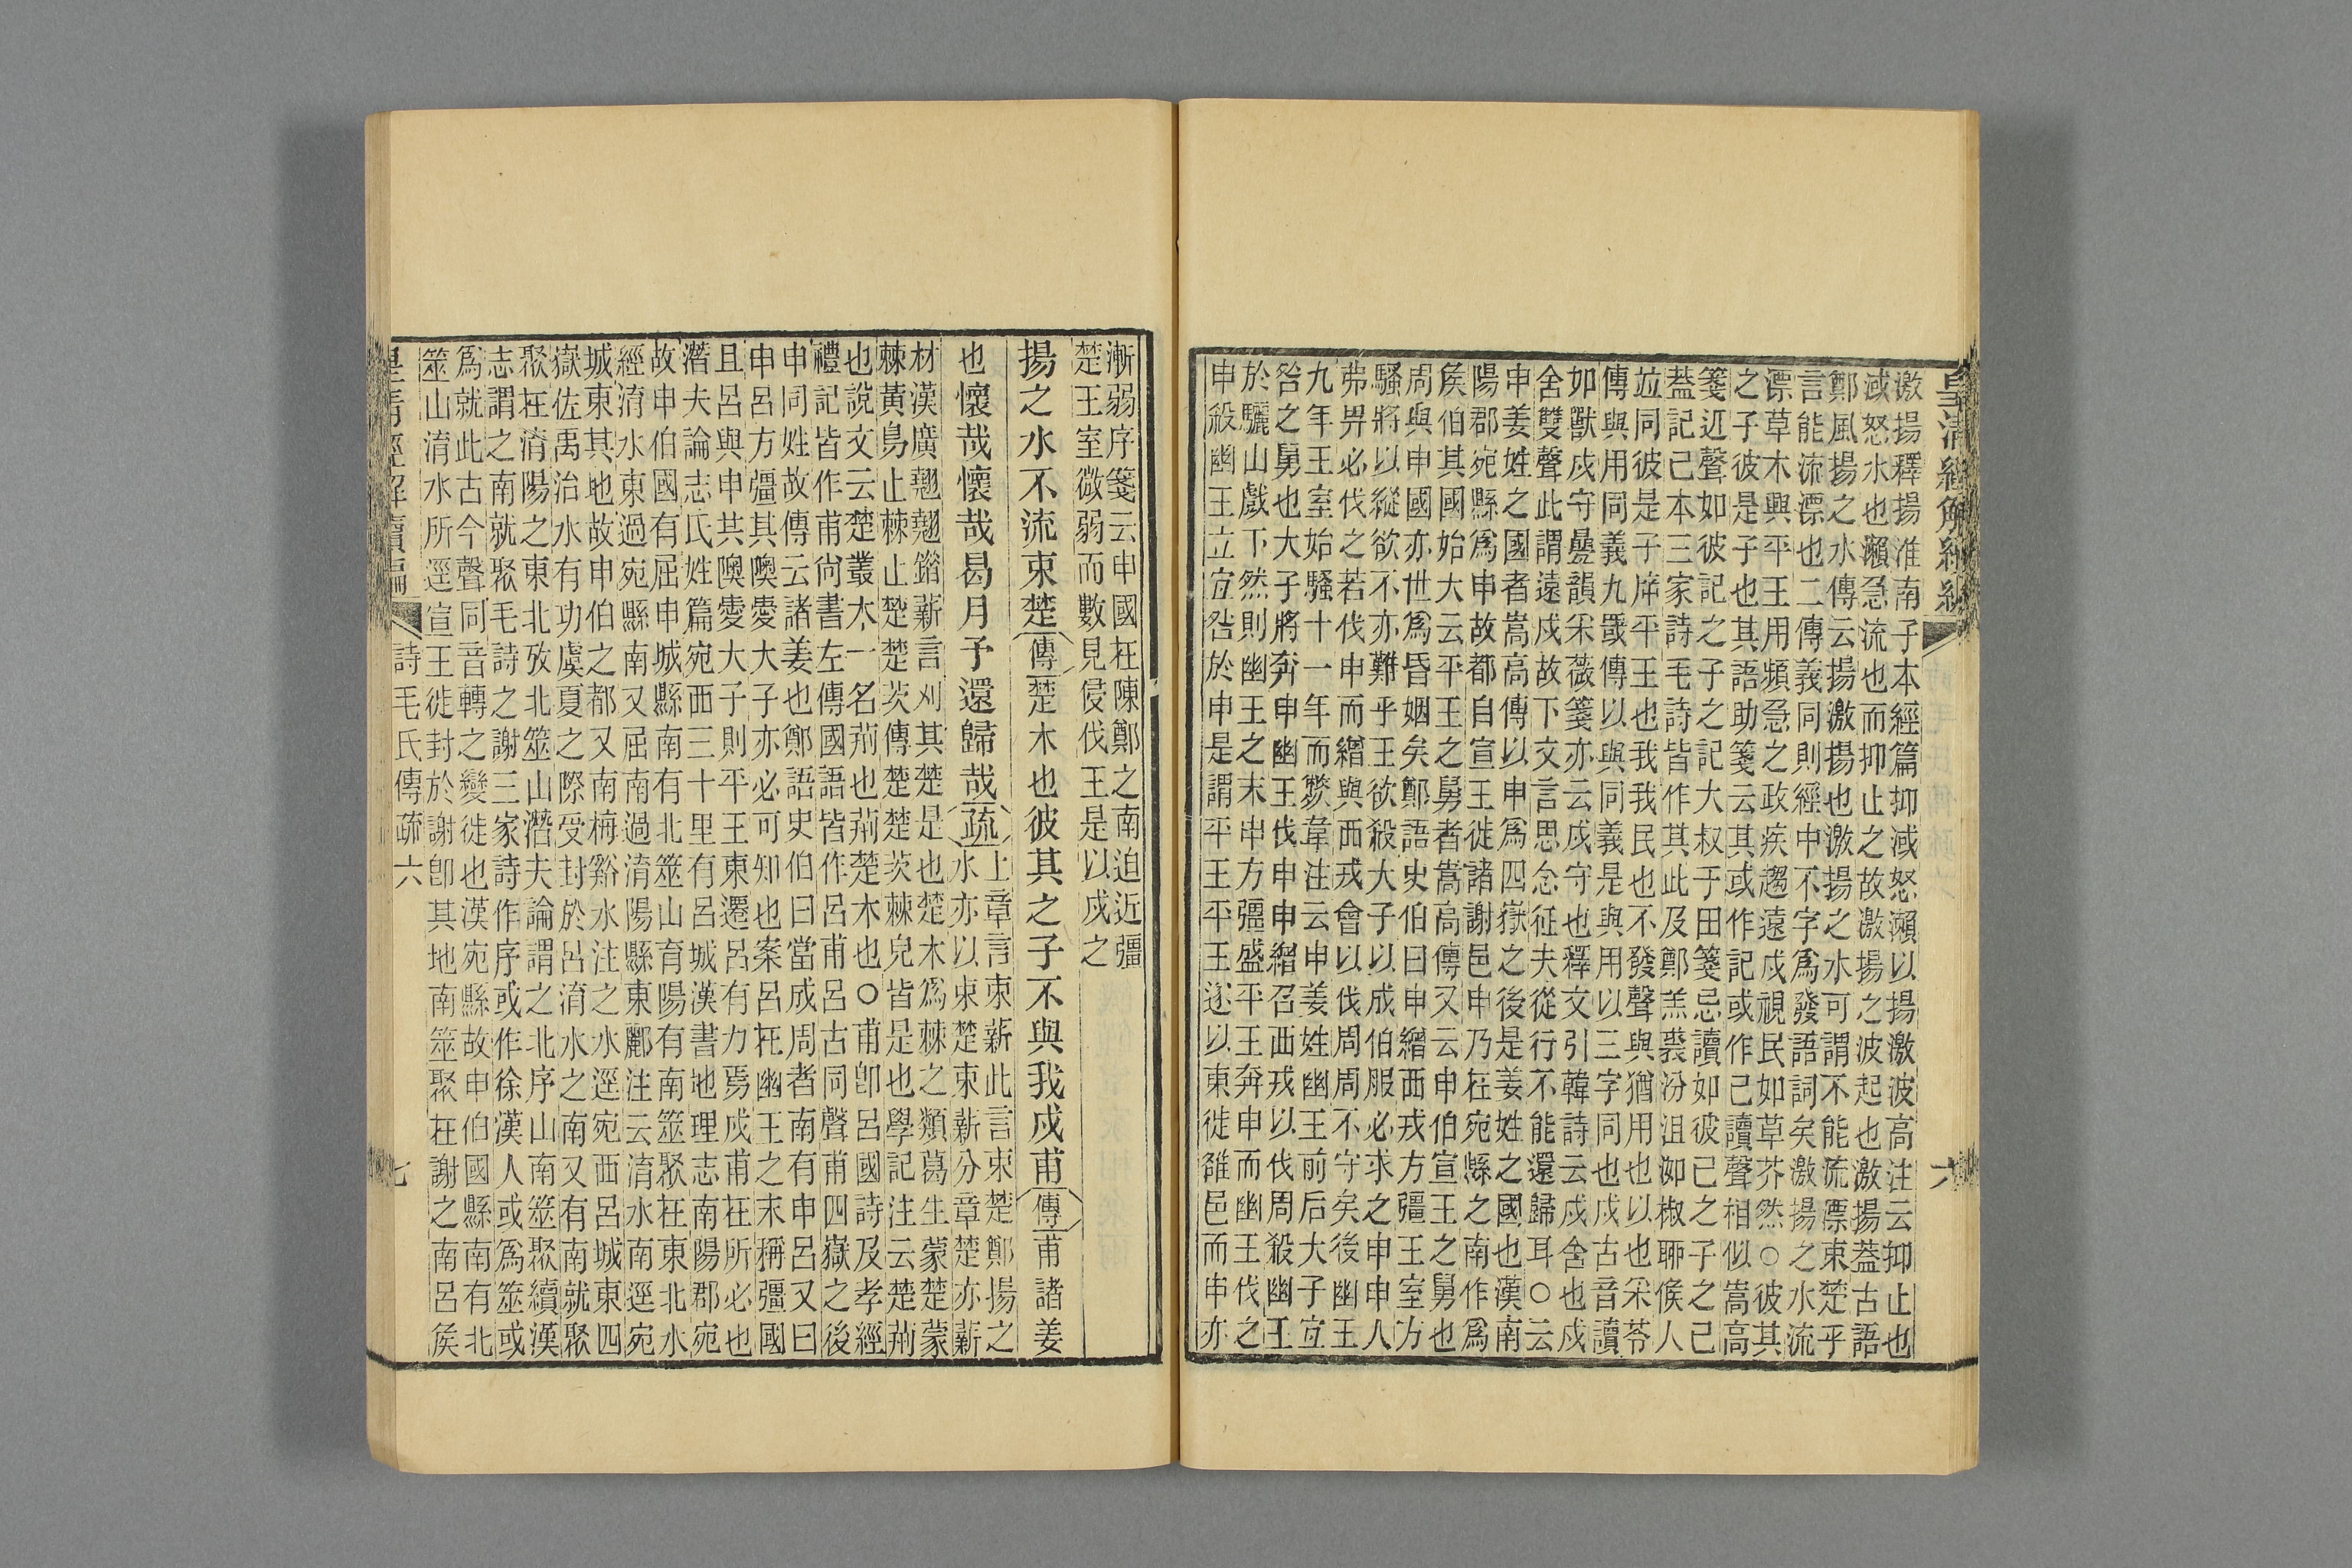 皇清經解續編
六
激揚釋揚淮南子本經篇抑減怒瀨以揚激波高注云抑止也
減怒水也瀨急流也而抑止之故激揚之波起也激揚葢古語
鄭風揚之水傳云揚激揚也激揚之水可謂不能流漂束楚乎
言能流漂也二傳義同則經中不字爲發語詞矣激揚之水流
漂草木與平王用頻急之政疾趨遠戍視民如草芥然○彼其
之子彼是子也其語助箋云其或作記或作己讀聲相似嵩高
箋近聲如彼記之子之記大叔于田箋忌讀如彼己之子之己
葢記己本三家詩毛詩皆作其此及鄭羔裘汾沮洳椒聊候人
竝同彼是子斥平王也我我民也不發聲與猶用也以也采苓
傳與用同義九罭傳以與同義是與用以三字同也戍古音讀
如獸戍守曡韻采薇箋亦云戍守也釋文引韓詩云戍舍也戍
舍雙聲此謂遠戍故下文言思念征夫從行不能還歸耳○云
申姜姓之國者嵩高傳以申爲四嶽之後是姜姓之國也漢南
陽郡宛縣爲申故都自宣王徙諸謝邑申乃在宛縣之南作爲
矦伯其國始大云平王之舅者嵩高傳又云申伯宣王之舅也
周與申國亦世爲昏姻矣鄭語史伯曰申繒西戎方彊王室方
騷將以縱欲不亦難乎王欲殺大子以成伯服必求之申申人
弗畀必伐之若伐申而繒與西戎會以伐周周不守矣後幽王
九年王室始騷十一年而斃韋注云申姜姓幽王前后大子宜
咎之舅也大子將奔申幽王伐申申繒召西戎以伐周殺幽王
於驪山戲下然則幽王之末申方彊盛平王奔申而幽王伐之
申殺幽王立宜咎於申是謂平王平王遂以東徙雒邑而申亦
漸弱序箋云申國在陳鄭之南迫近彊
楚王室微弱而數見侵伐王是以戍之
揚之水不流束楚傳楚木也彼其之子不與我戍甫傳甫諸姜
也懷哉懷哉曷月予還歸哉疏上章言束薪此言束楚鄭揚之
水亦以束楚束薪分章楚亦薪
材漢廣翹翹錯薪言刈其楚是也楚木爲棘之類葛生蒙楚蒙
棘黃鳥止棘止楚楚茨傳楚楚茨棘皃皆是也學記注云楚荊
也說文云楚叢木一名荊也荊楚木也○甫卽呂國詩及孝經
禮記皆作甫尙書左傳國語皆作呂甫呂古同聲甫四嶽之後
申同姓故傳云諸姜也鄭語史伯曰當成周者南有申呂又曰
申呂方彊其隩愛大子亦必可知也案呂在幽王之末稱彊國
且呂與申共隩愛大子則平王東遷呂有力焉戍甫在所必也
潛夫論志氏姓篇宛西三十里有呂城漢書地理志南陽郡宛
故申伯國有屈申城縣南有北筮山育陽有南筮聚在東北水
經淯水東過宛縣南又屈南過淯陽縣東酈注云淯水南逕宛
城東其地故申伯之都又南梅谿水注之水逕宛西呂城東四
嶽佐禹治水有功虞夏之際受封於呂淯水之南又有南就聚
聚在淯陽之東北攷北筮山潛夫論謂之北序山南筮聚續漢
志謂之南就聚毛詩之謝三家詩作序或作徐漢人或爲筮或
爲就此古今聲同音轉之變徙也漢宛縣故申伯國縣南有北
筮山淯水所逕宣王徙封於謝卽其地南筮聚在謝之南呂矦
皇清經解續編
詩毛氏傳疏六
七